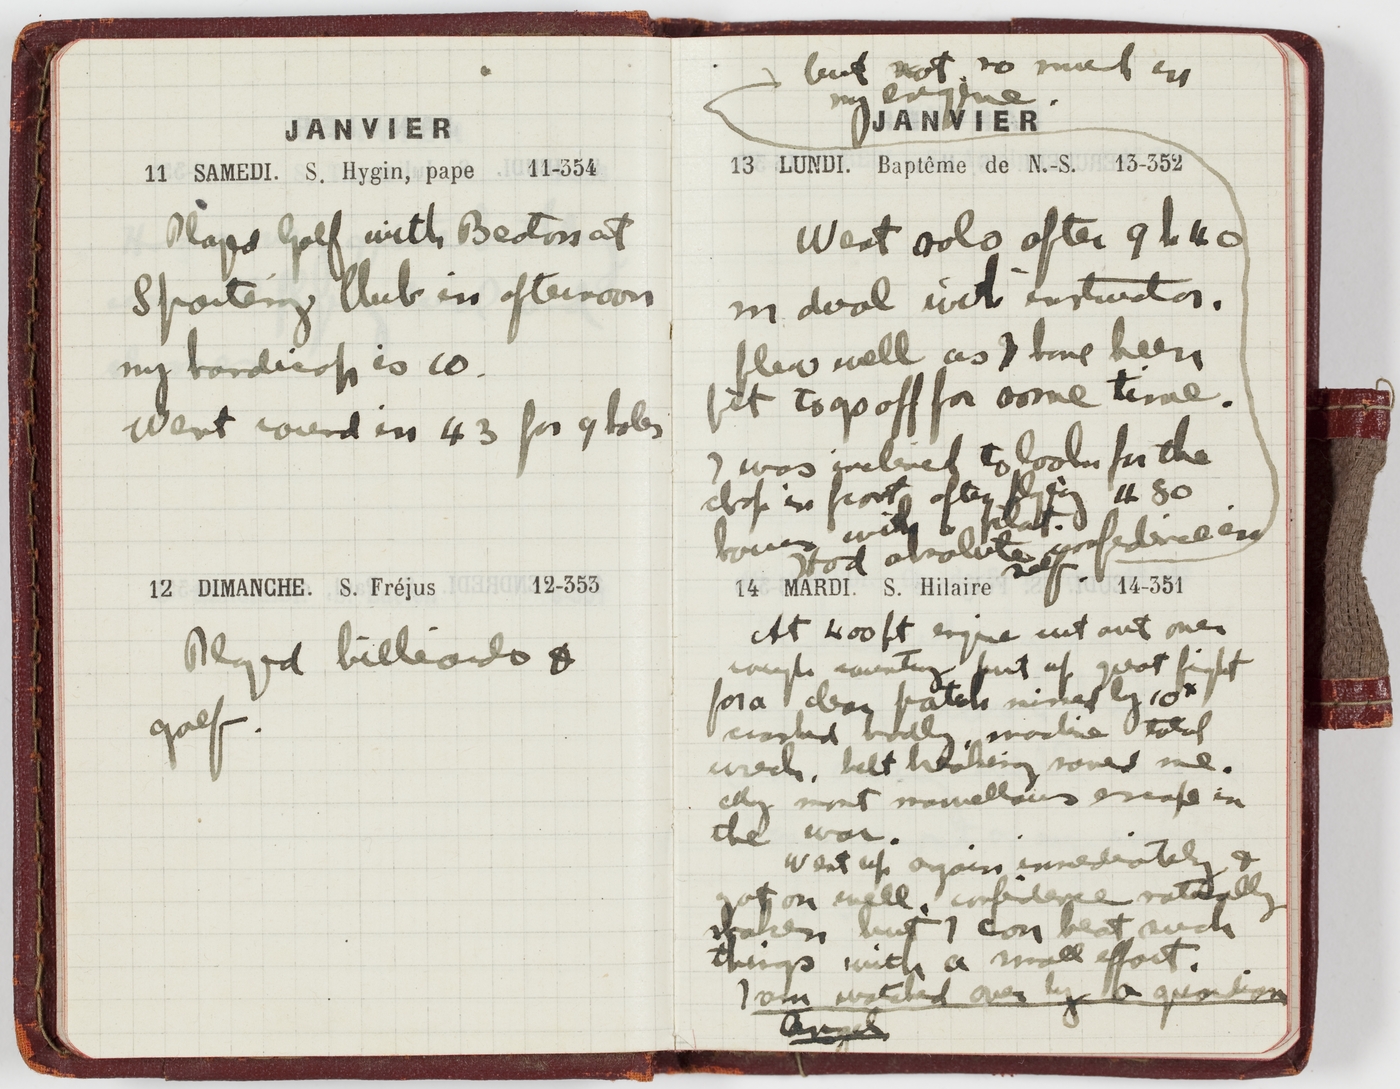 JANVIER
11 SAMEDI. S. Hygin, pape 11-354
Played Golf with Beatons at
Sporting Club in afternoon
my handicap is 10.
Went round in 43 for 9 holes
12 DIMANCHE. S. Fréjus 12-353
Played billiards &
golf.
but not so much in
my engine.
JANVIER
13 LUNDI. Baptême de N.-S. 13-352
Went solo after 9 h 40
m dual with instructor.
flew well as I have been
fit to go off for some time.
I was inclined to look for the
chap in front after flying 450
hours with a pilot.
Had absolute confidence in
self.
14 MARDI. S. Hilaire 14-351
At 400 ft engine cut out over
rough country, put up great fight
for a clear patch missed by 10x
crashed badly, machine total
wreck, belt breaking saved me.
My most marvellous escape in
the war.
Went up again immediately &
got on well, confidence naturally
shaken but I can beat such
things with a small effort.
I am watched over by a guardian
Angel